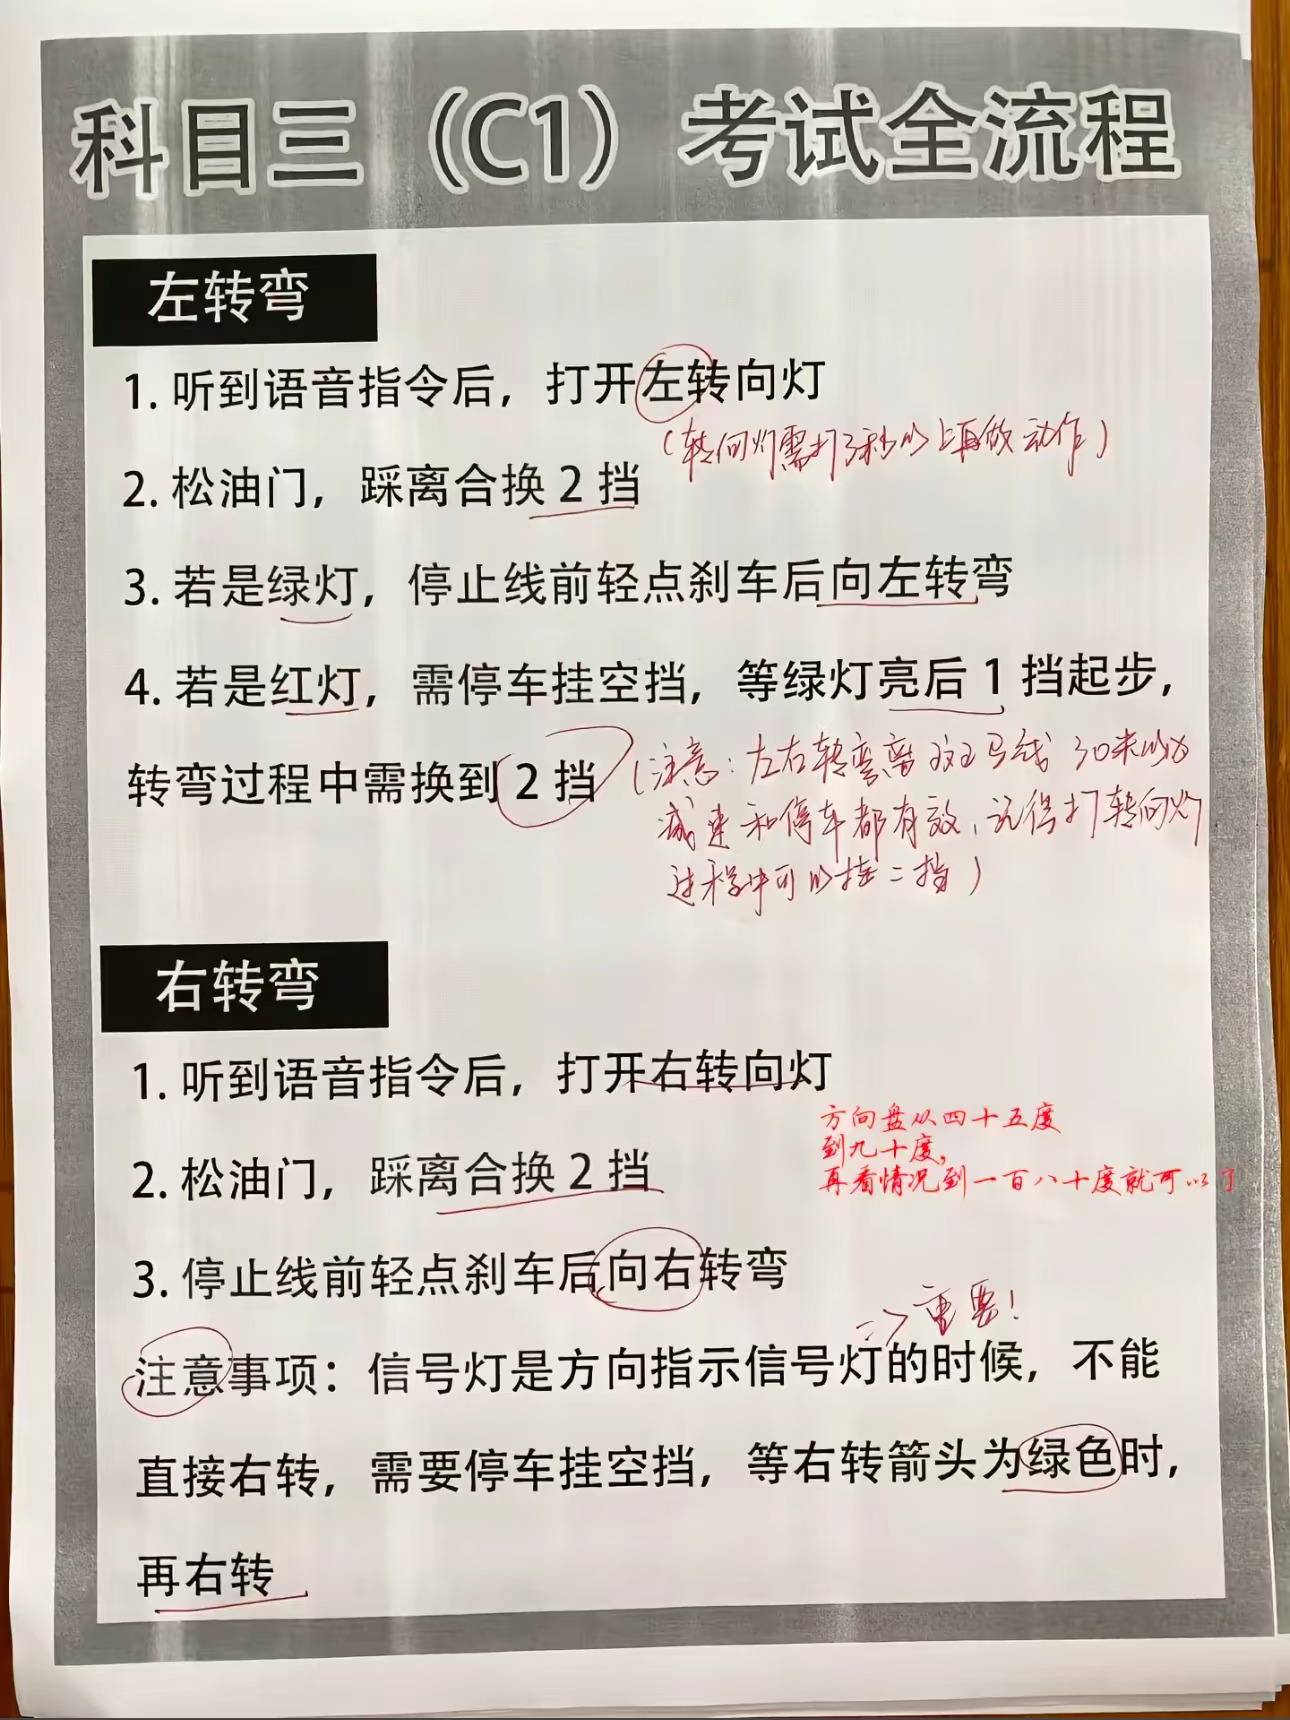 科目三（C1）考试全流程
左转弯
1. 听到语音指令后，打开左转向灯
（转向灯需打3秒以上再做动作）
2. 松油门，踩离合换 2 挡
3. 若是绿灯，停止线前轻点刹车后向左转弯
4. 若是红灯，需停车挂空挡，等绿灯亮后 1 挡起步，
转弯过程中需换到 2 挡
（注意：左右转弯离斑马线 30米以内
减速和停车都有效，记得打转向灯
过程中可以挂二挡）
右转弯
1. 听到语音指令后，打开右转向灯
方向盘从四十五度
到九十度，
再看情况到一百八十度就可以了
2. 松油门，踩离合换 2 挡
3. 停止线前轻点刹车后向右转弯
=> 重要！
注意事项：信号灯是方向指示信号灯的时候，不能
直接右转，需要停车挂空挡，等右转箭头为绿色时，
再右转